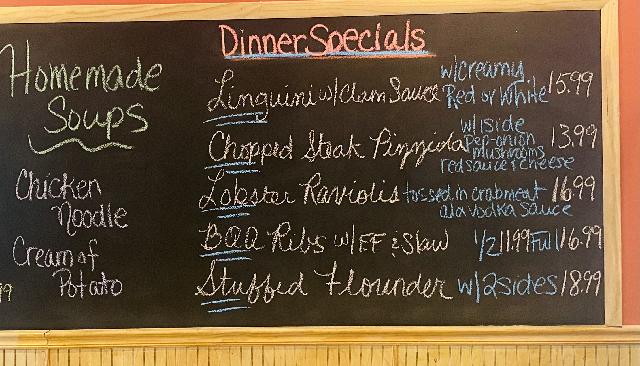 Homemade
Soups
Chicken
Noodle
Cream of
Potato
Dinner Specials
Linguini w/ Clam Sauce w/creamy Red or White 15.99
Chopped Steak Pizziola w/side Pep-onion mushrooms red sauce & cheese 13.99
Lobster Raviolis tossed in crabmeat ala vodka sauce 16.99
BQQ Ribs w/ FF & Slaw 1/2 11.99 Full 16.99
Stuffed Flounder w/2 sides 18.99